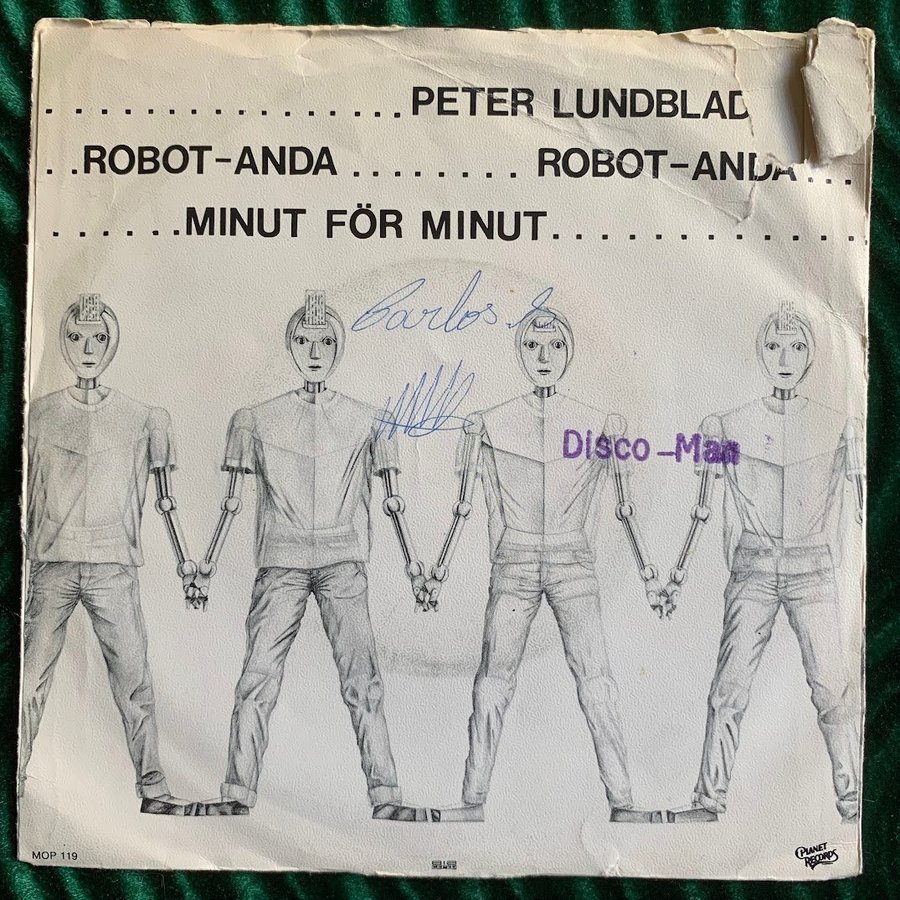 ................PETER LUNDBLAD
..ROBOT-ANDA ........ ROBOT-ANDA...
......MINUT FÖR MINUT..................
Carlos
Disco-Man
MOP 119
PLANET RECORDS